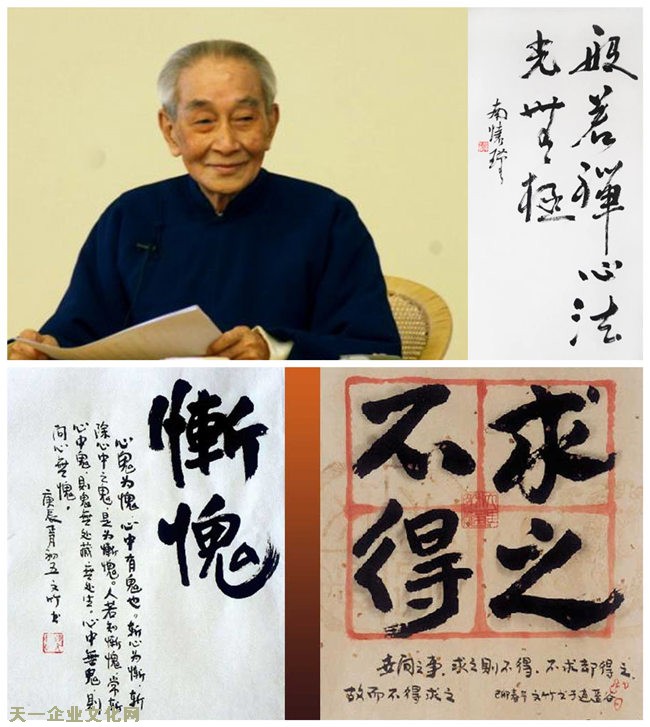 般若禪心法
光無極
南懷瑾
慚愧
心鬼为愧,心中有鬼也。斩心为慚,斩
除心中之鬼,是为慚愧。人若知慚愧,常斩
心中鬼,则鬼無处藏,無处生,心中無鬼,则
问心無愧。
庚辰 月初五文竹书
求之
不得
世间之事,求之则不得,不求却得之,
故而不得求之 己卯春 文竹于逍遥谷
天一企业文化网